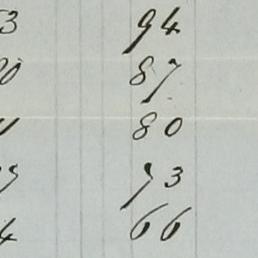 3 94
0 87
80
73
4 66